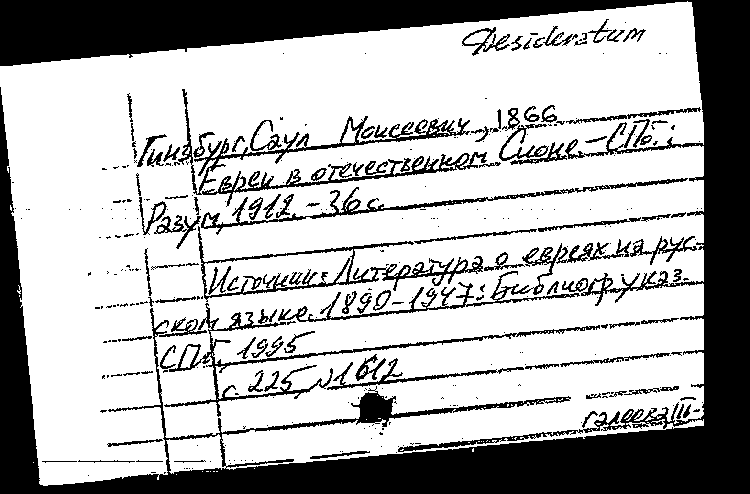 Desideratum
Гинзбург, Саул Моисеевич, 1866
Евреи в отечественном Сионе. – СПб.:
Разум, 1912. – 36 с.
Источник: Литература о евреях на рус-
ском языке. 1890-1947: Библиогр. указ.
СПб., 1995
с. 225, №1612
галеева III-